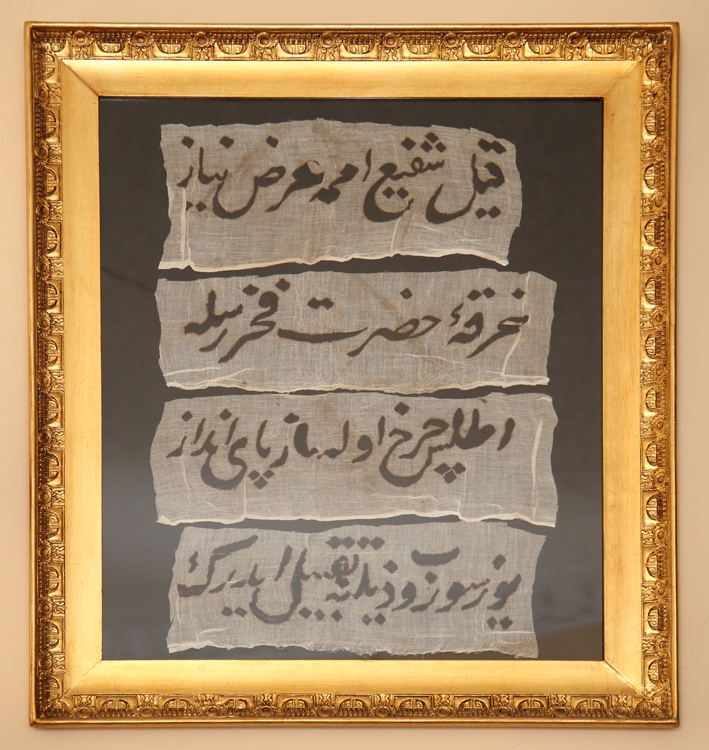 قيل شفيع اممه عرض نياز
خرقهٔ حضرت فخر رسله
اطلس چرخ اوله ماز پای انداز
يوز سوروب ذيلنه تقبيل ايدرك